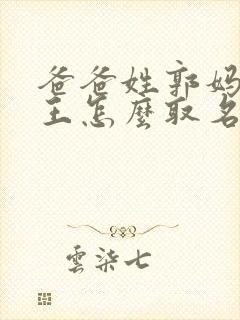 爸爸姓郭妈
王怎麼取名
雲柒七